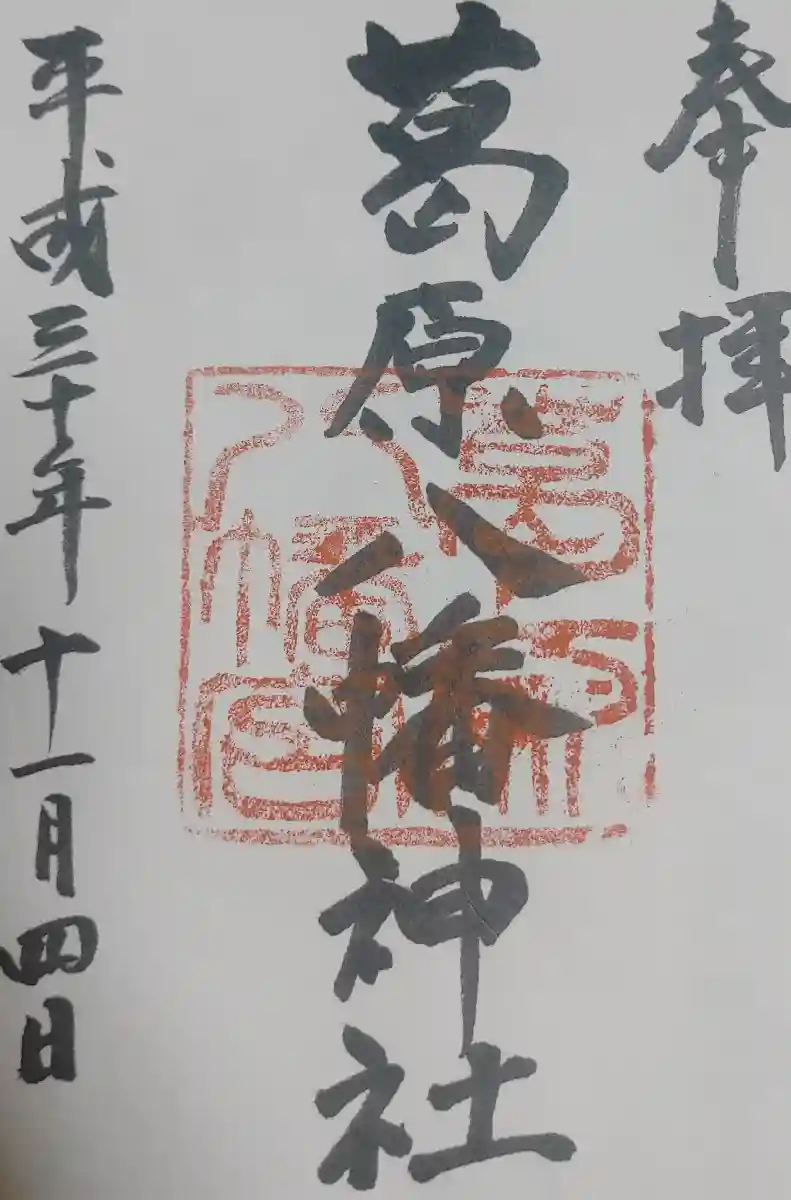 奉拝
葛原八幡神社
平成三十年十一月四日